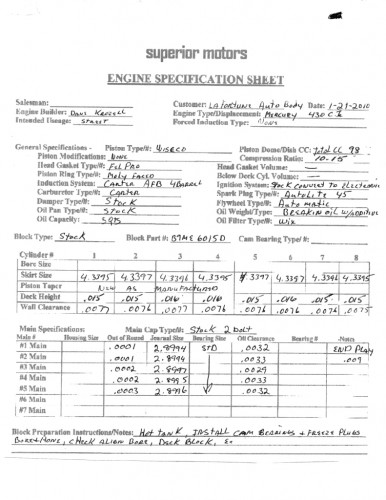 superior motors
ENGINE SPECIFICATION SHEET
Salesman:
Customer: LaFortune Auto Body Date: 1-29-2010
Engine Builder:
Engine Type/Displacement: Mercury 430 C.I.
Intended Useage: STREET
Forced Induction Type: None
General Specifications - Piston Type/#: WISECO
Piston Dome/Dish CC: Total CC 98
Piston Modifications: None
Compression Ratio: 10.15
Head Gasket Type/#: Fel Pro
Head Gasket Volume: —
Piston Ring Type/#: Moly Faced
Below Deck Cyl. Volume: —
Induction System: Carter AFB 4 Barrel
Ignition System: Stock convert to Electronic
Carburetor Type/#: Carter
Spark Plug Type/#: Autolite 45
Damper Type/#: Stock
Flywheel Type/#: Automatic
Oil Pan Type/#: STOCK
Oil Weight/Type: Break in oil w/additive
Oil Capacity: 5 qts
Oil Filter Type/#: Wix
Block Type: Stock Block Part #: B7ME 6015D Cam Bearing Type/#:
Cylinder # 1 2 3 4 5 6 7 8
Bore Size
Skirt Size 4.3395 4.3397 4.3396 4.3395 4.3397 4.3396 4.3396 4.3395
Piston Taper New AS Manufactured
Deck Height .015 .015 .016 .016 .015 .015 .015 .015
Wall Clearance .0077 .0076 .0077 .0076 .0076 .0076 .0076 .0075
Main Specifications: Main Cap Type/#: Stock 2 bolt
Main # Housing Size Out of Round Journal Size Bearing Size Oil Clearance Bearing # -Notes
#1 Main .0001 2.8994 STD .0032 END Play
#2 Main .0001 2.8996 .0033 .009
#3 Main .0002 2.8997 .0029
#4 Main .0002 2.8995 .0033
#5 Main .0003 2.8996 .0032
#6 Main
#7 Main
Block Preparation Instructions/Notes: Hot tank, Install cam bearings + freeze plugs
Bore + Hone, check align bore, Deck Block,